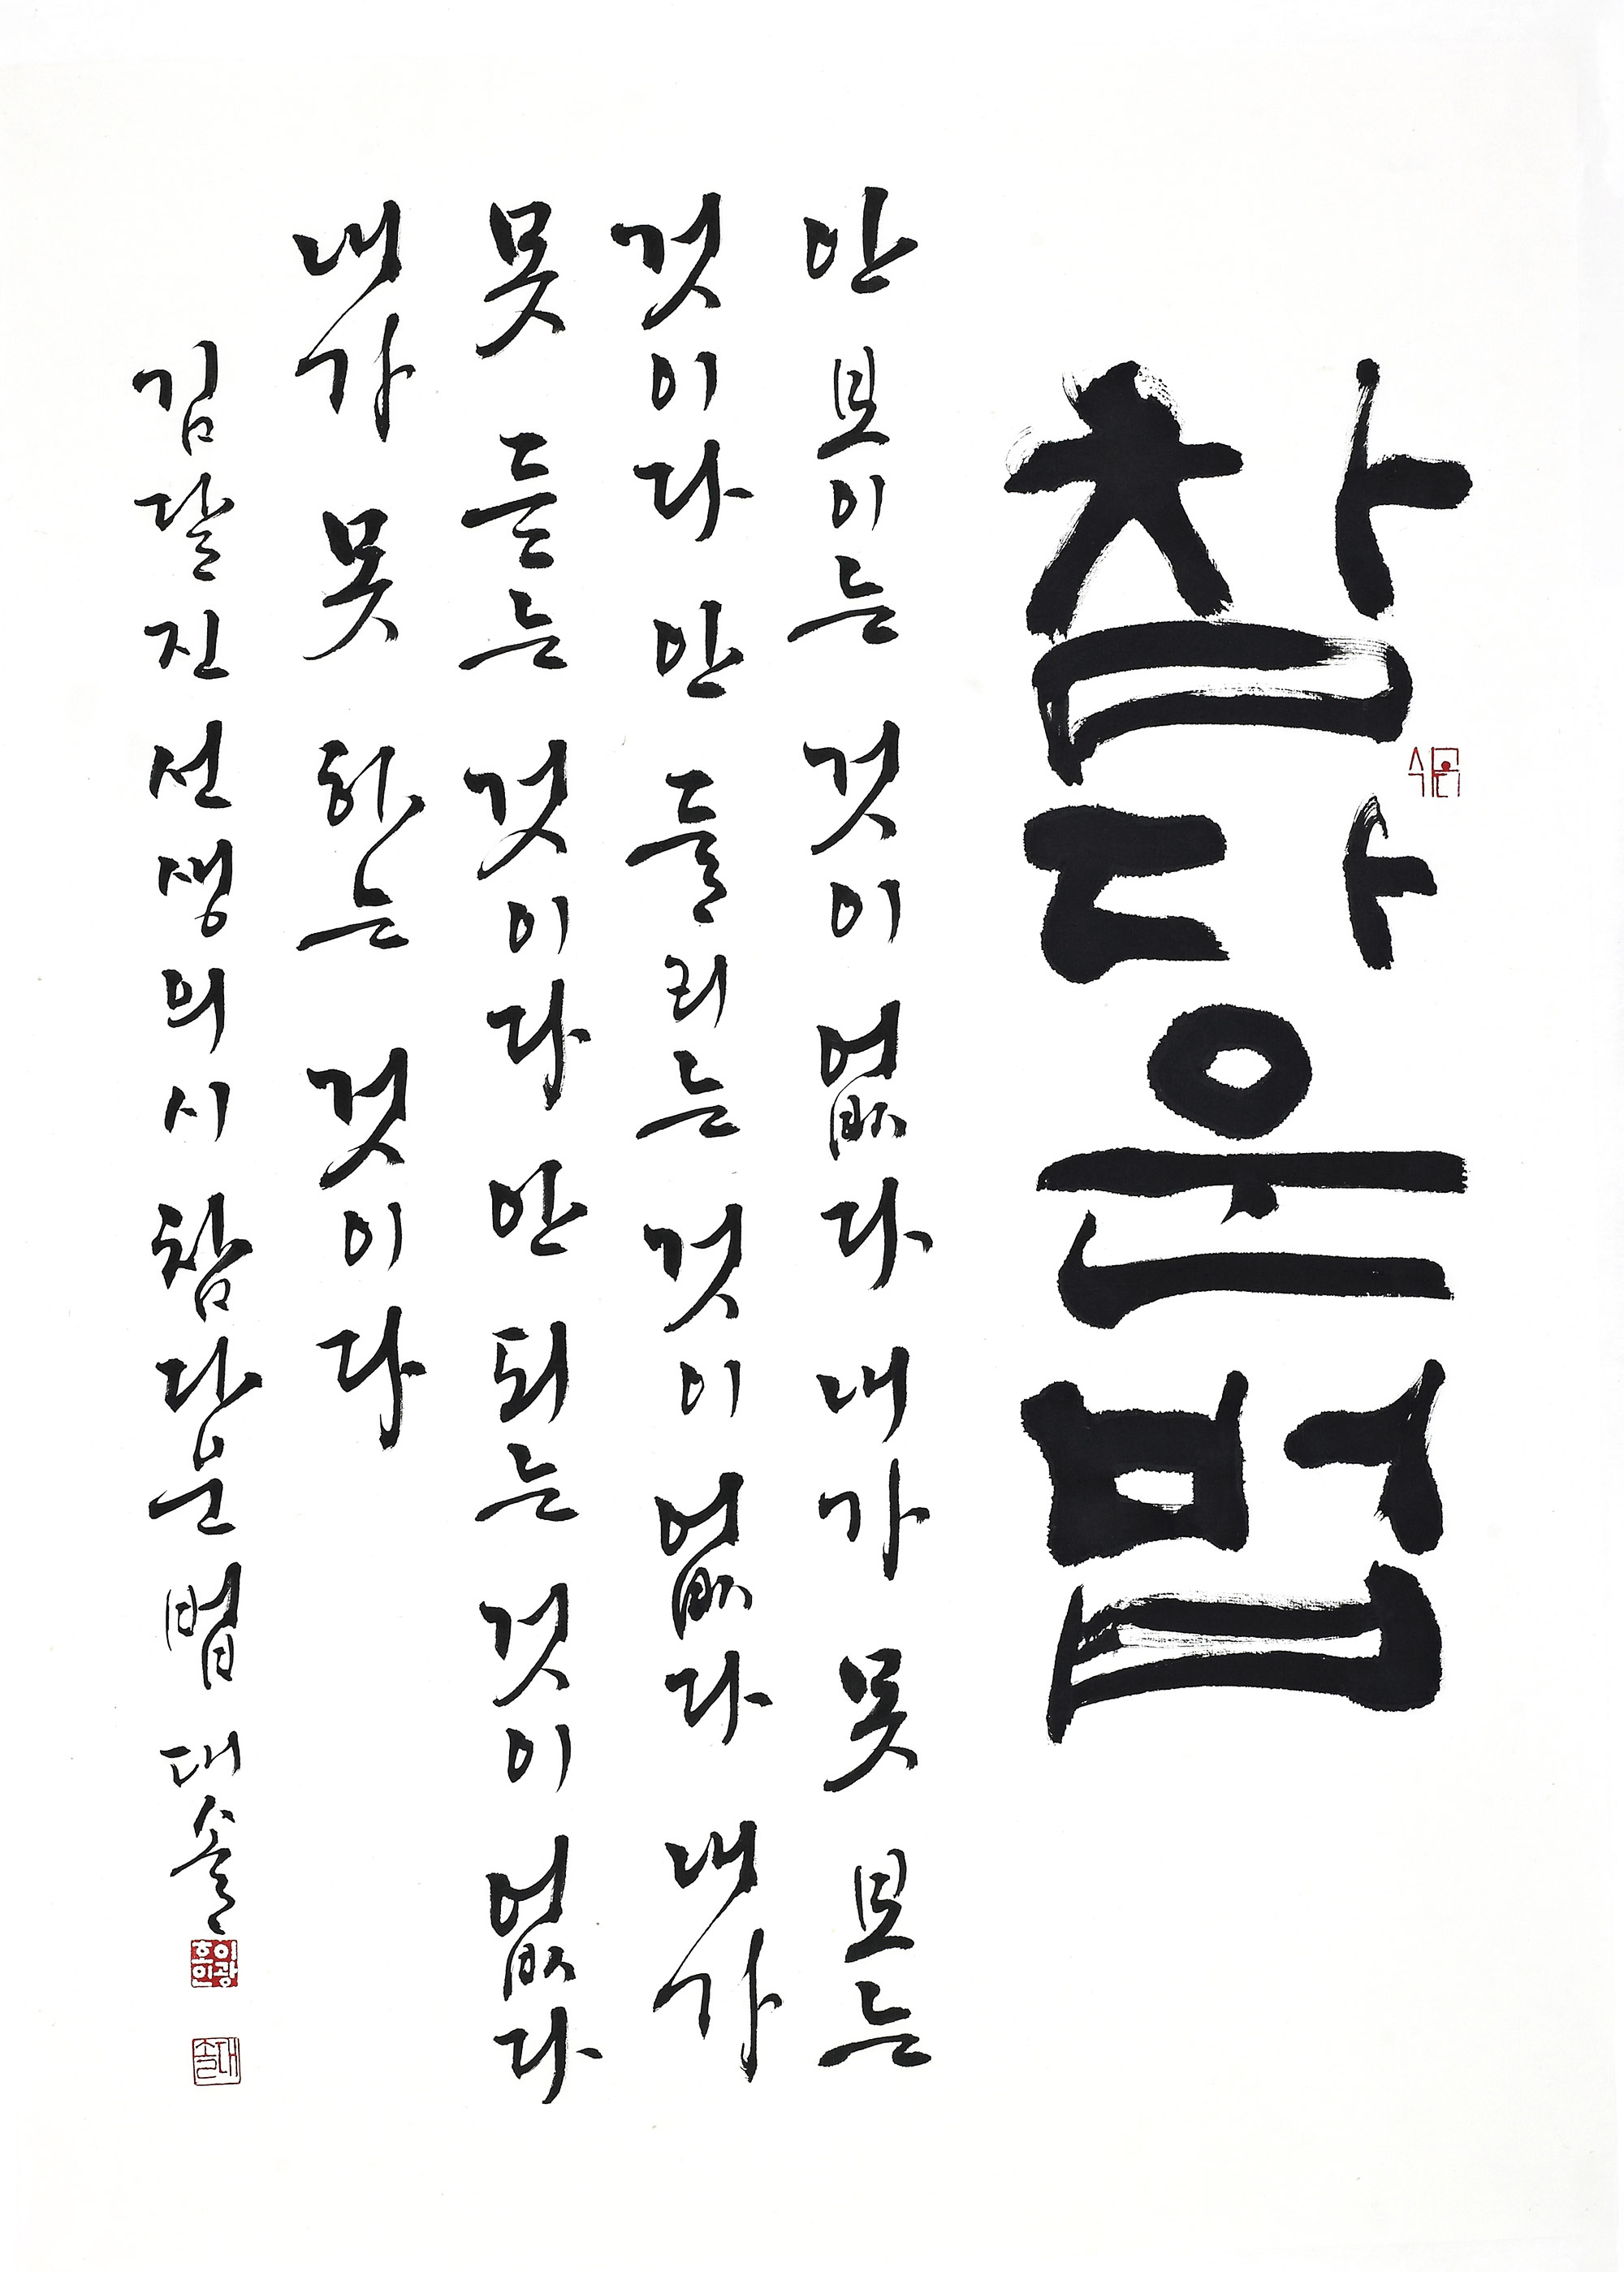 참다운 법
안 보이는 것이 없다 내가 못 보는
것이다 안 들리는 것이 없다 내가
못 듣는 것이다 안 되는 것이 없다
내가 못 하는 것이다
김달진 선생의 시 참다운 법 대솔
이광호인
대솔